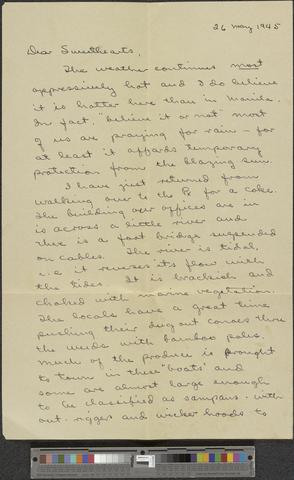 26 May 1945
Dear Sweethearts,
The weather continues most
oppressively hot and I do believe
it is hotter here than in Manila.
In fact, "believe it or not" most
of us are praying for rain - for
at least it affords temporary
protection from the blazing sun.
I have just returned from
walking over to the Px for a Coke.
The building our offices are in
is across a little river and
there is a foot bridge suspended
on cables. The river is tidal,
i.e. it reverses its flow with
the tides. It is brackish and
choked with marine vegetation.
The locals have a great time
pushing their dug out canoes thru
the weeds with bamboo poles.
Much of the produce is brought
to town in these "boats" and
some are almost large enough
to be classified as sampans - with
out-riggers and wicker hoods to